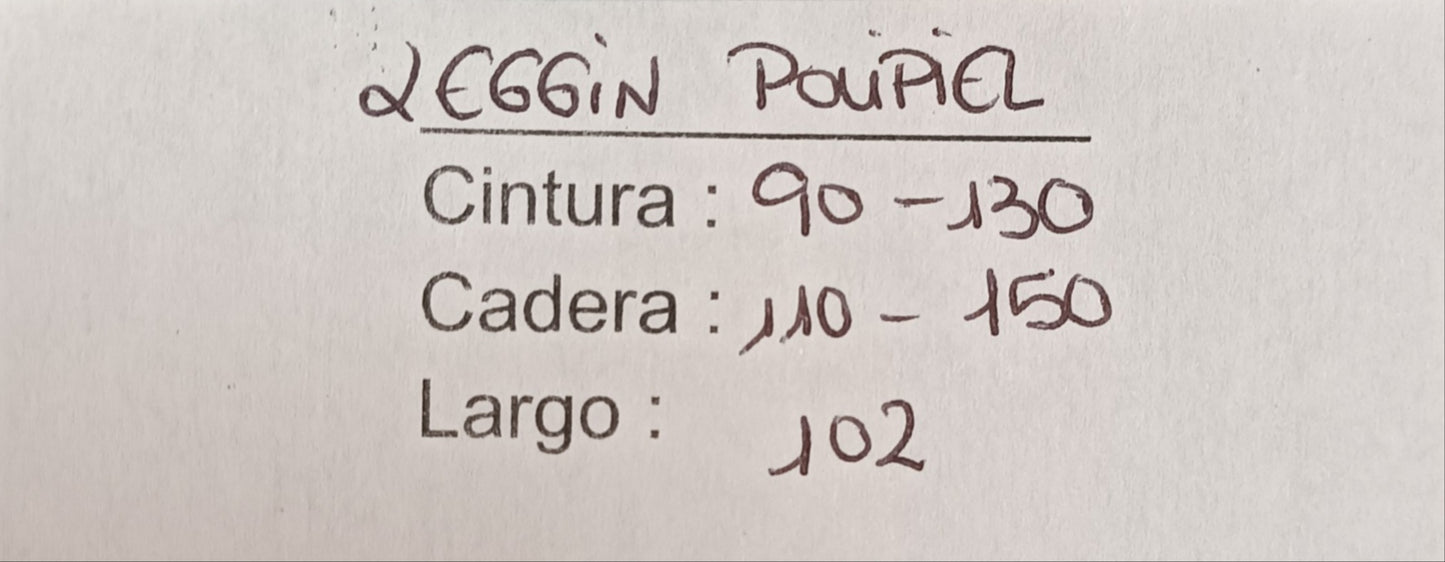 LEGGiN POLiPiEL
Cintura : 90 - 130
Cadera : 110 - 150
Largo : 102